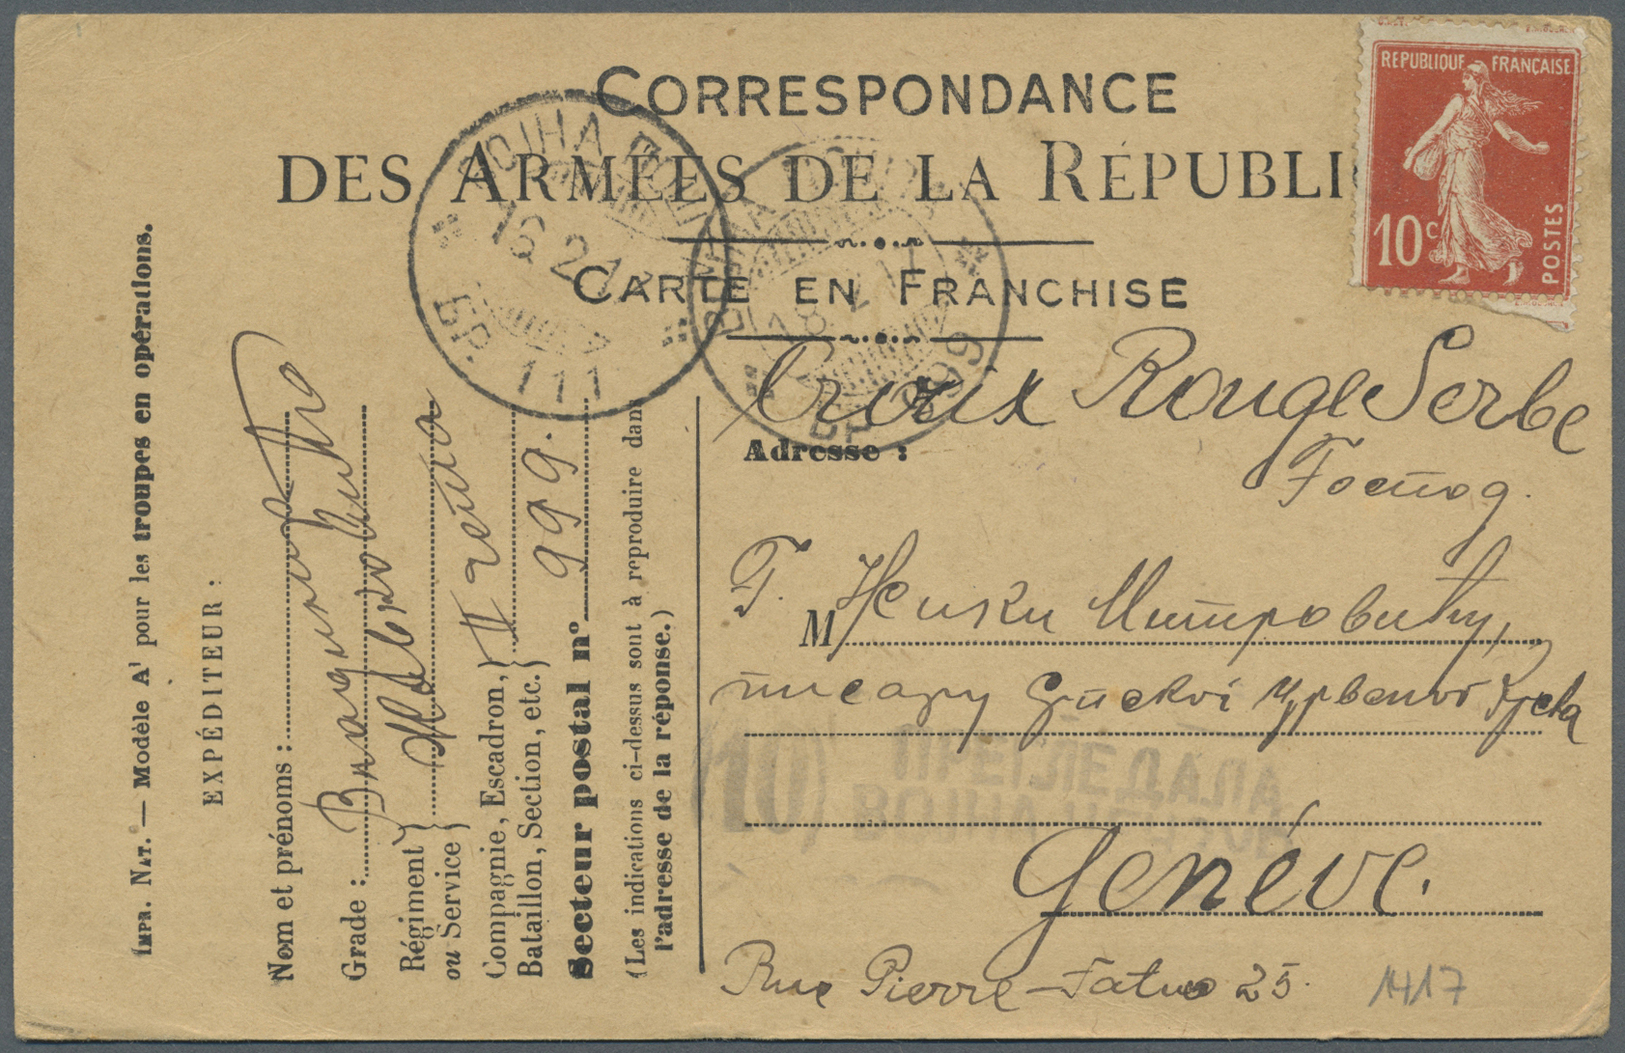 CORRESPONDANCE
DES ARMÉES DE LA RÉPUBLI
CARTE EN FRANCHISE
REPUBLIQUE FRANÇAISE
10c
POSTES
16 2 17
БР. 111
18 2 17
БР 999
Croix Rouge Serbe
Adresse :
Господ.
Г. M Живки Митровићу,
писару Српског Црвеног Крста
(10) ПРЕГЛЕДАЛА
Genéve.
Rue Pierre-Fatio 25.
1417
IMPR. NAT. — Modèle A1 pour les troupes en opérations.
EXPÉDITEUR :
Nom et prénoms :
Grade :
Régiment
ou Service
Compagnie, Escadron,
Bataillon, Section, etc.
II чета
Secteur postal n° 999.
(Les indications ci-dessus sont à reproduire dans
l'adresse de la réponse.)